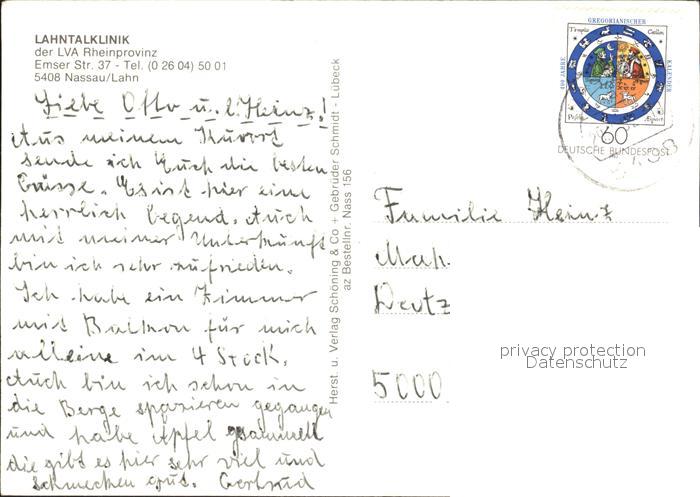 LAHNTALKLINIK
der LVA Rheinprovinz
Emser Str. 37 - Tel. (0 26 04) 50 01
5408 Nassau/Lahn
Liebe Otto u. l. Heinz!
Aus meinem Kurort
sende ich Euch die besten
Grüsse. Es ist hier eine
herrlich Gegend. Auch
mit meiner Unterkunft
bin ich sehr zufrieden.
Ich habe ein Zimmer
mit Balkon für mich
alleine im 4 Stock.
Auch bin ich schon in
die Berge spazieren gegangen
und habe Äpfel gesammelt
die gibt es hier sehr viel und
schmecken gut. Gertrud
Herst. u. Verlag Schöning & Co + Gebrüder Schmidt - Lübeck
az Bestellnr. Nass 156
400 JAHRE
GREGORIANISCHER
KALENDER
60
DEUTSCHE BUNDESPOST
Familie Heinz
Deutz
5000
privacy protection
Datenschutz